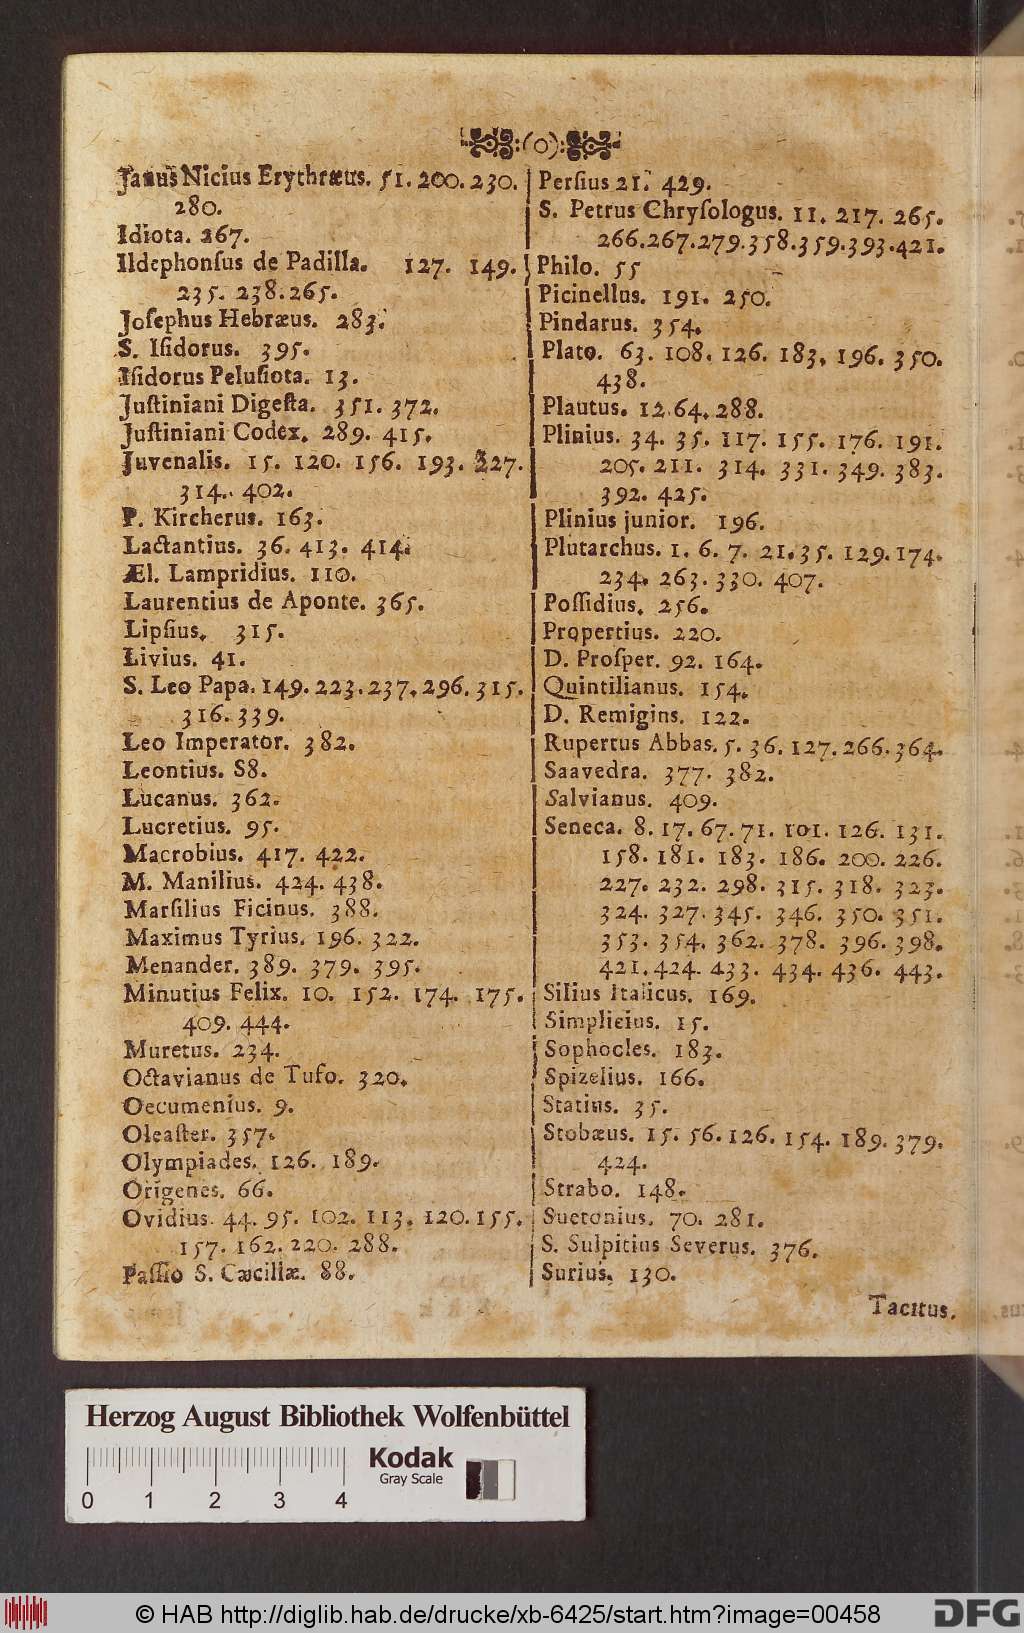 Janus Nicius Erythræus. 51. 200. 230.
280.
Idiota. 267.
Ildephonſus de Padilla. 127. 149.
235. 238. 265.
Joſephus Hebræus. 283.
S. Iſidorus. 395.
Iſidorus Peluſiota. 13.
Juſtiniani Digeſta. 351. 372.
Juſtiniani Codex. 289. 415.
Juvenalis. 15. 120. 156. 193. 227.
314. 402.
P. Kircherus. 163.
Lactantius. 36. 413. 414.
Æl. Lampridius. 110.
Laurentius de Aponte. 365.
Lipſius. 315.
Livius. 41.
S. Leo Papa. 149. 223. 237. 296. 315.
316. 339.
Leo Imperator. 382.
Leontius. S8.
Lucanus. 362.
Lucretius. 95.
Macrobius. 417. 422.
M. Manilius. 424. 438.
Marſilius Ficinus. 388.
Maximus Tyrius. 196. 322.
Menander. 389. 379. 395.
Minutius Felix. 10. 152. 174. 175.
409. 444.
Muretus. 234.
Octavianus de Tufo. 320.
Oecumenius. 9.
Oleaſter. 357.
Olympiades. 126. 189.
Origenes. 66.
Ovidius. 44. 95. 102. 113. 120. 155.
157. 162. 220. 288.
Paſſio S. Cæciliæ. 88.
Perſius 21. 429.
S. Petrus Chryſologus. 11. 217. 265.
266. 267. 279. 358. 359. 393. 421.
Philo. 55
Picinellus. 191. 250.
Pindarus. 354.
Plato. 63. 108. 126. 183. 196. 350.
438.
Plautus. 12. 64. 288.
Plinius. 34. 35. 117. 155. 176. 191.
205. 211. 314. 331. 349. 383.
392. 425.
Plinius junior. 196.
Plutarchus. 1. 6. 7. 21. 35. 129. 174.
234. 263. 330. 407.
Poſſidius. 256.
Propertius. 220.
D. Proſper. 92. 164.
Quintilianus. 154.
D. Remigins. 122.
Rupertus Abbas. 5. 36. 127. 266. 364.
Saavedra. 377. 382.
Salvianus. 409.
Seneca. 8. 17. 67. 71. 101. 126. 131.
158. 181. 183. 186. 200. 226.
227. 232. 298. 315. 318. 323.
324. 327. 345. 346. 350. 351.
353. 354. 362. 378. 396. 398.
421. 424. 433. 434. 436. 443.
Silius Italicus. 169.
Simplicius. 15.
Sophocles. 183.
Spizelius. 166.
Statius. 35.
Stobæus. 15. 56. 126. 154. 189. 379.
424.
Strabo. 148.
Suetonius. 70. 281.
S. Sulpitius Severus. 376.
Surius. 130.
Tacitus.
Herzog August Bibliothek Wolfenbüttel
Kodak
Gray Scale
0 1 2 3 4
© HAB http://diglib.hab.de/drucke/xb-6425/start.htm?image=00458
DFG